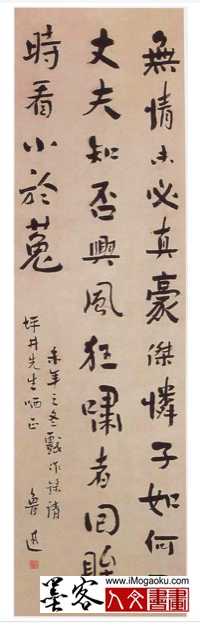 無情未必真豪傑憐子如何
丈夫知否興風狂嘯者回眸
時看小於菟
未年之冬戲作錄請
坪井先生哂正
魯迅
www.iMogaoku.com
墨客人文書畫